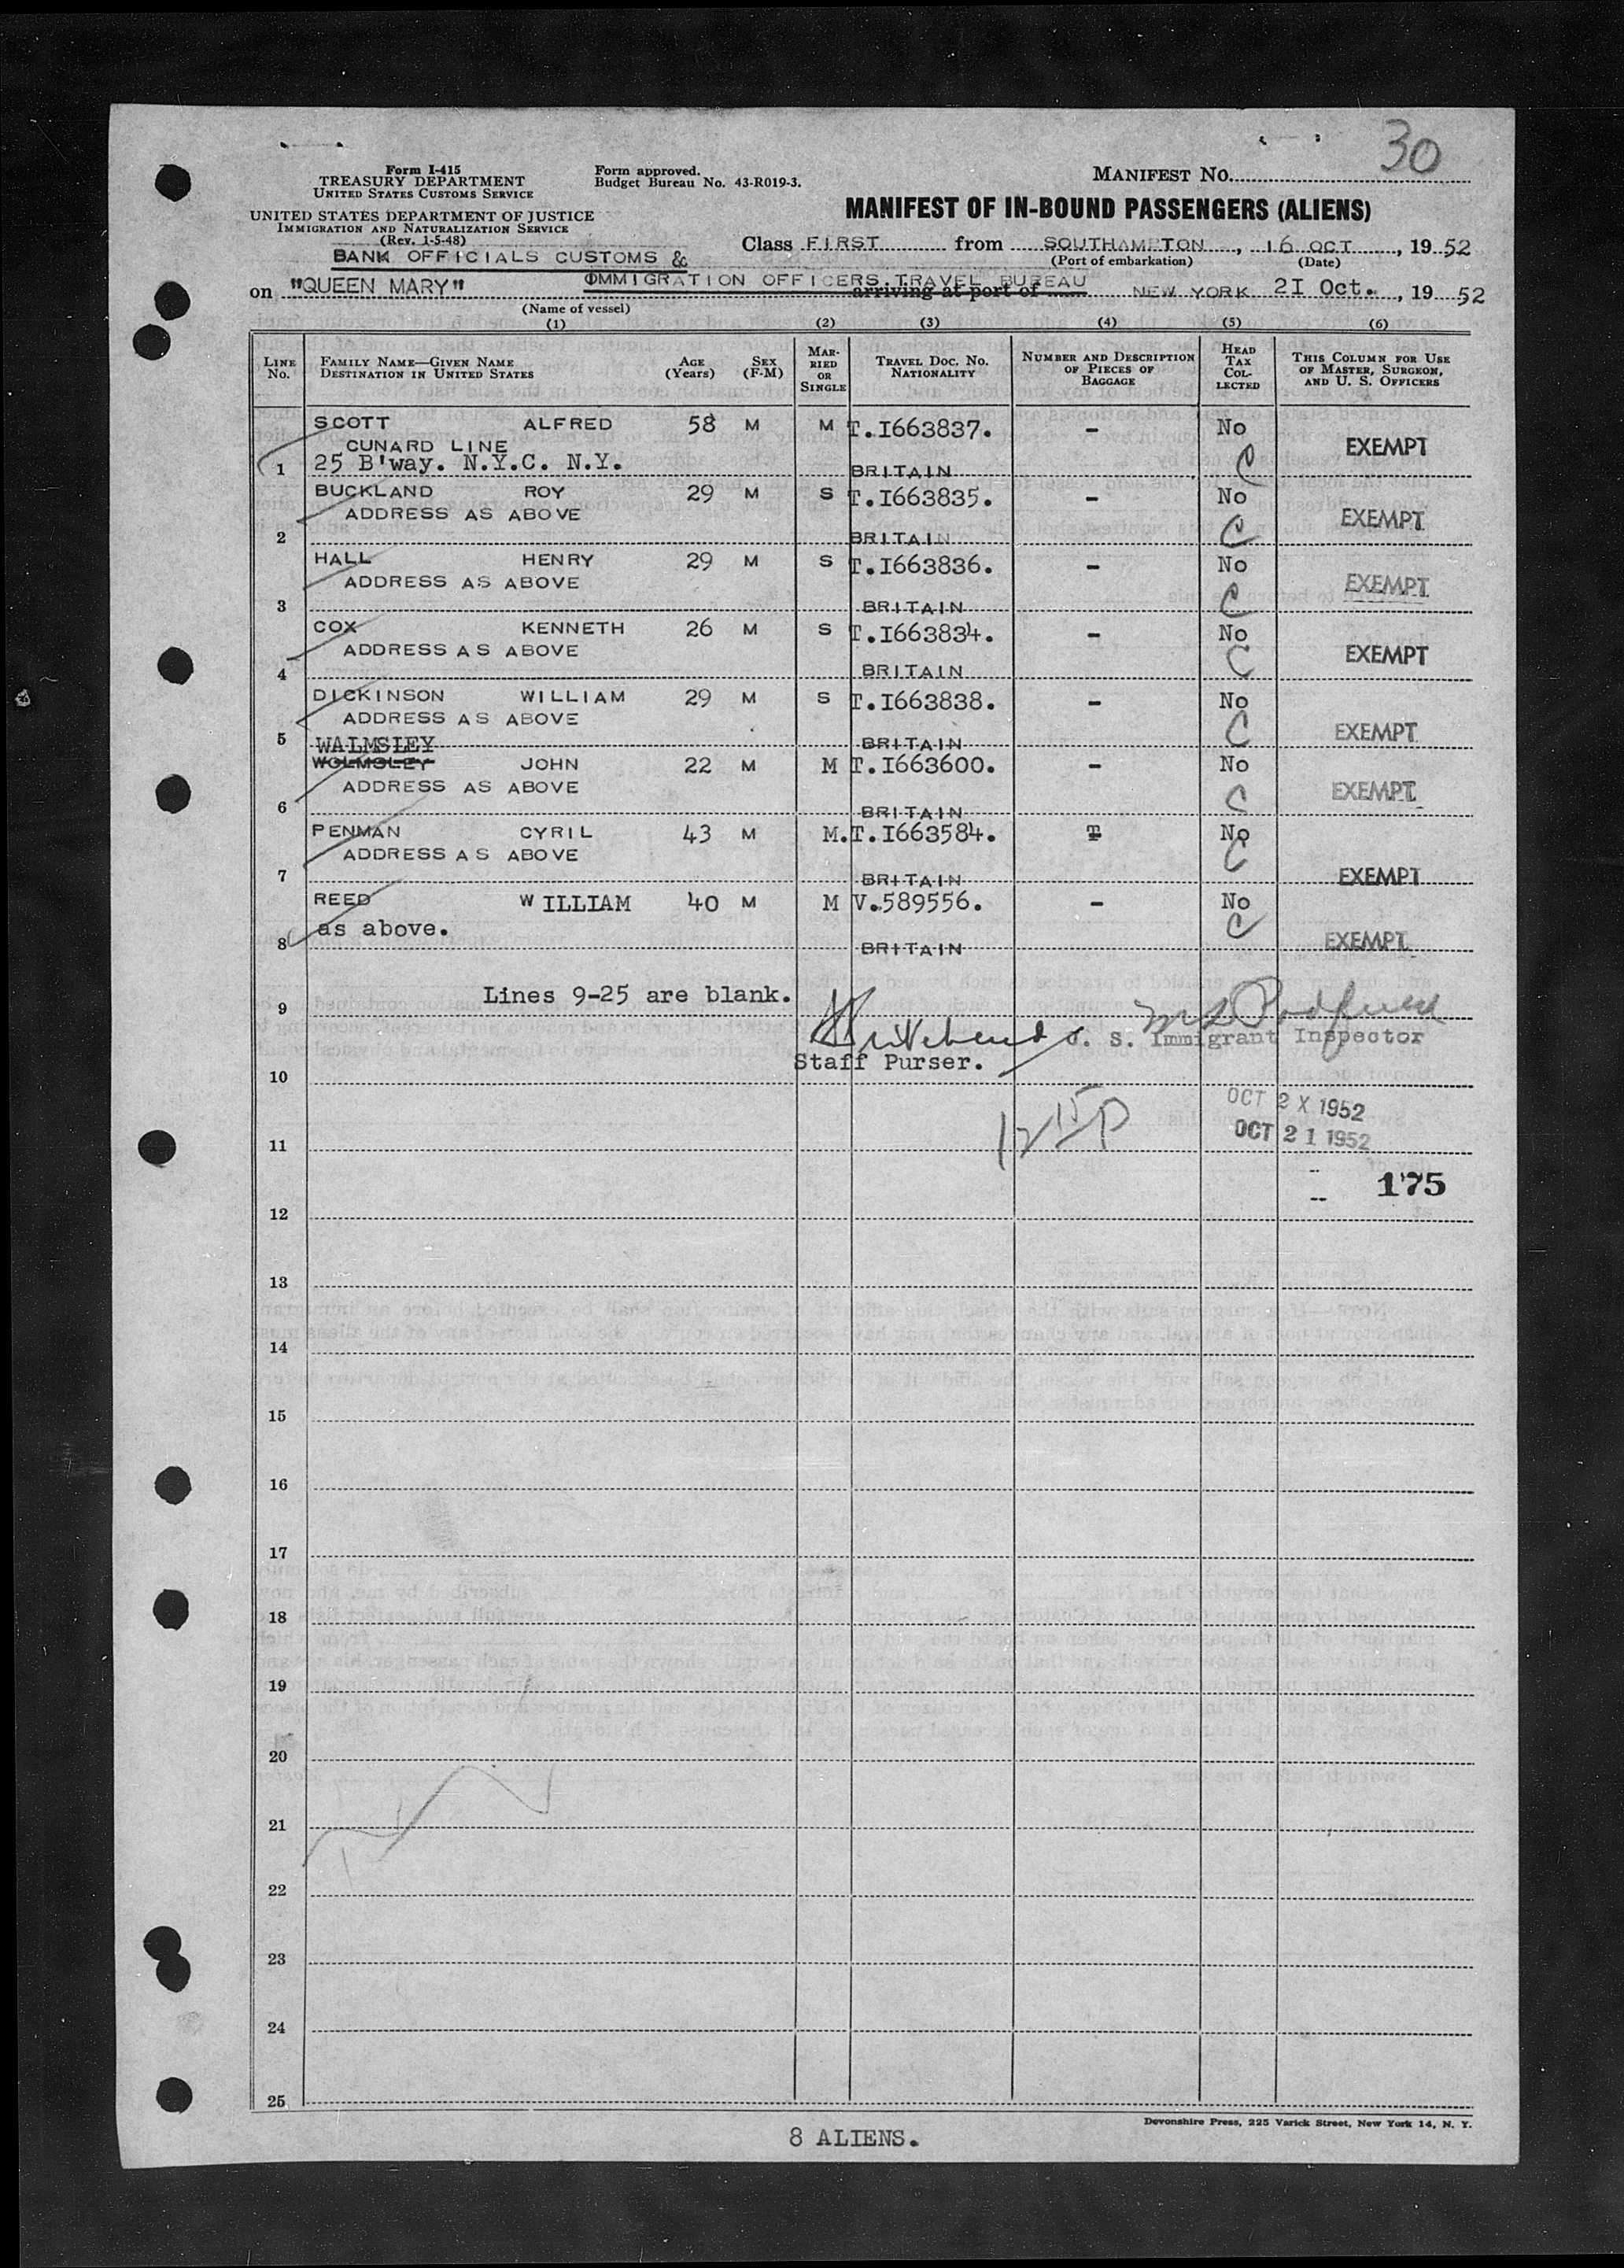 30
Form I-415
TREASURY DEPARTMENT
UNITED STATES CUSTOMS SERVICE
Form approved.
Budget Bureau No. 43-R019-3.
MANIFEST NO.
UNITED STATES DEPARTMENT OF JUSTICE
IMMIGRATION AND NATURALIZATION SERVICE
(Rev. 1-5-48)
MANIFEST OF IN-BOUND PASSENGERS (ALIENS)
BANK OFFICIALS CUSTOMS &
Class FIRST from SOUTHAMPTON, 16 OCT, 1952
(Port of embarkation) (Date)
IMMIGRATION OFFICERS TRAVEL BUREAU
on "QUEEN MARY" arriving at port of NEW YORK 2I Oct., 1952
(Name of vessel)
(1) (2) (3) (4) (5) (6)
LINE No. FAMILY NAME—GIVEN NAME DESTINATION IN UNITED STATES AGE (Years) SEX (F-M) MARRIED OR SINGLE TRAVEL DOC. NO. NATIONALITY NUMBER AND DESCRIPTION OF PIECES OF BAGGAGE HEAD TAX COLLECTED THIS COLUMN FOR USE OF MASTER, SURGEON, AND U. S. OFFICERS
SCOTT ALFRED 58 M M T.I663837. – No
CUNARD LINE EXEMPT
1 25 B'way. N.Y.C. N.Y. BRITAIN C
BUCKLAND ROY 29 M S T.I663835. – No
ADDRESS AS ABOVE EXEMPT
2 BRITAIN C
HALL HENRY 29 M S T.I663836. – No
ADDRESS AS ABOVE EXEMPT
3 BRITAIN C
COX KENNETH 26 M S T.I663834. – No
ADDRESS AS ABOVE EXEMPT
4 BRITAIN C
DICKINSON WILLIAM 29 M S T.I663838. – No
ADDRESS AS ABOVE EXEMPT
5 BRITAIN C
WALMSLEY
WOLMSLEY JOHN 22 M M T.I663600. – No
ADDRESS AS ABOVE EXEMPT
6 BRITAIN C
PENMAN CYRIL 43 M M. T.I663584. T No
ADDRESS AS ABOVE C
7 BRITAIN EXEMPT
REED WILLIAM 40 M M V.589556. – No
as above. C
8 BRITAIN EXEMPT
Lines 9-25 are blank.
9
U. S. Immigrant Inspector
Staff Purser.
10
OCT 2 X 1952
OCT 21 1952
11
175
12
13
14
15
16
17
18
19
20
21
22
23
24
25
Devonshire Press, 225 Varick Street, New York 14, N. Y.
8 ALIENS.